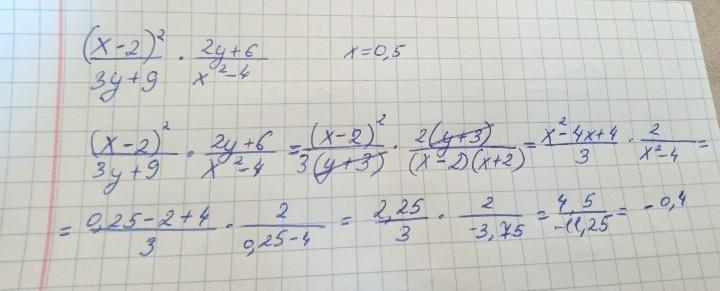 (x-2)²/3y+9 · 2y+6/x²-4 x=0,5
(x-2)²/3y+9 · 2y+6/x²-4 = (x-2)²/3(y+3) · 2(y+3)/(x-2)(x+2) = x²-4x+4/3 · 2/x²-4 =
= 0,25-2+4/3 · 2/0,25-4 = 2,25/3 · 2/-3,75 = 4,5/-11,25 = -0,4